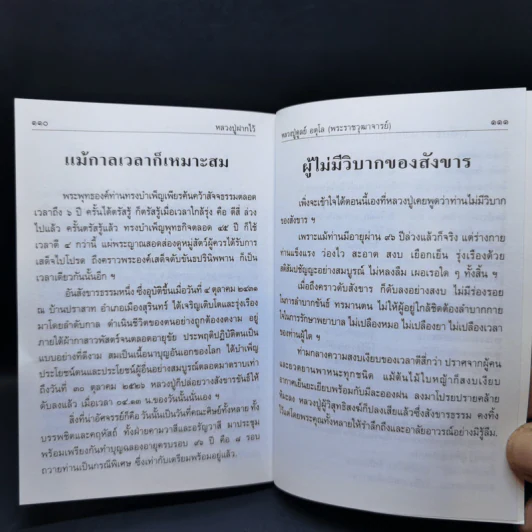 ๑๑๐
หลวงปู่ฝากไว้
แม้กาลเวลาก็เหมาะสม
พระพุทธองค์ท่านทรงบำเพ็ญเพียรค้นคว้าสัจจธรรมตลอด
เวลาถึง ๖ ปี ครั้นได้ตรัสรู้ ก็ตรัสรู้เมื่อเวลาใกล้รุ่ง คือ ตีสี่ ล่วง
ไปแล้ว ครั้นตรัสรู้แล้ว ทรงบำเพ็ญพุทธกิจตลอด ๔๕ ปี ก็ใช้
เวลาตี ๔ กว่านี้ แผ่พระญาณสอดส่องดูหมู่สัตว์ผู้ควรได้รับการ
เสด็จไปโปรด ถึงคราวพระองค์เสด็จดับขันธปรินิพพาน ก็เป็น
เวลาเดียวกันนั้นอีก ฯ
อันสังขารธรรมหนึ่ง ซึ่งอุบัติขึ้นเมื่อวันที่ ๔ ตุลาคม ๒๔๓๑
ณ บ้านปราสาท อำเภอเมืองสุรินทร์ ได้เจริญเติบโตและรุ่งเรือง
มาโดยลำดับกาล ดำเนินชีวิตของตนอย่างถูกต้องงดงาม อยู่
ภายใต้ผ้ากาสาวพัสตร์จนตลอดอายุขัย ประพฤติปฏิบัติตนเป็น
แบบอย่างที่ดีงาม สมเป็นเนื้อนาบุญอันเอกของโลก ได้บำเพ็ญ
ประโยชน์ตนและประโยชน์ผู้อื่นอย่างสมบูรณ์ตลอดมาตราบเท่า
ถึงวันที่ ๓๐ ตุลาคม ๒๕๒๖ หลวงปู่ก็ปล่อยวางสังขารขันธ์ให้
ดับลงแล้ว เมื่อเวลา ๐๔.๑๓ น.ของวันนั้นนั่นเอง ฯ
สิ่งที่น่าอัศจรรย์ก็คือ วันนั้นเป็นวันที่คณะศิษย์ทั้งหลาย ทั้ง
บรรพชิตและคฤหัสถ์ ทั้งฝ่ายคามวาสีและอรัญวาสี มาประชุม
พร้อมเพรียงกันทำบุญฉลองอายุครบรอบ ๙๖ ปี คือ ๘ รอบ
ถวายท่านเป็นกรณีพิเศษ ซึ่งเท่ากับเตรียมพร้อมอยู่แล้ว.
หลวงปู่ดูลย์ อตุโล (พระราชวุฒาจารย์)
๑๑๑
ผู้ไม่มีวิบากของสังขาร
เพิ่งจะเข้าใจได้ตอนนี้เองที่หลวงปู่เคยพูดว่าท่านไม่มีวิบาก
ของสังขาร ฯ
เพราะแม้ท่านมีอายุผ่าน ๙๖ ปีล่วงแล้วก็จริง แต่ร่างกาย
ท่านแข็งแรง ว่องไว สะอาด สงบ เยือกเย็น รุ่งเรืองด้วย
สติสัมปชัญญะอย่างสมบูรณ์ ไม่หลงลืม เผอเรอใด ๆ ทั้งสิ้น ฯ
เมื่อถึงคราวดับสังขาร ก็ดับลงอย่างสงบ ไม่มีร่องรอย
แห่งการลำบากขันธ์ ทรมานตน ไม่ให้ผู้อยู่ใกล้ชิดต้องลำบากกาย
ใจในการรักษาพยาบาล ไม่เปลืองหมอ ไม่เปลืองยา ไม่เปลืองเวลา
ของท่านผู้ใด ฯ
ท่ามกลางความสงบเงียบของเวลาตีสี่กว่า ปราศจากผู้คน
และยวดยานพาหนะทุกชนิด แม้ต้นไม้ใบหญ้าก็สงบเงียบ
อากาศเย็นยะเยียบพร้อมกับมีละอองฝน ลงมาโปรยปรายคล้าย
หิมะลง หลวงปู่ผู้วิสุทธิสงฆ์ก็ปลงเสียแล้วซึ่งสังขารธรรม คงทิ้ง
ไว้แต่โดยพระคุณทั้งหลายให้รำลึกถึงและอาลัยอาวรณ์อย่างมิรู้ลืม.